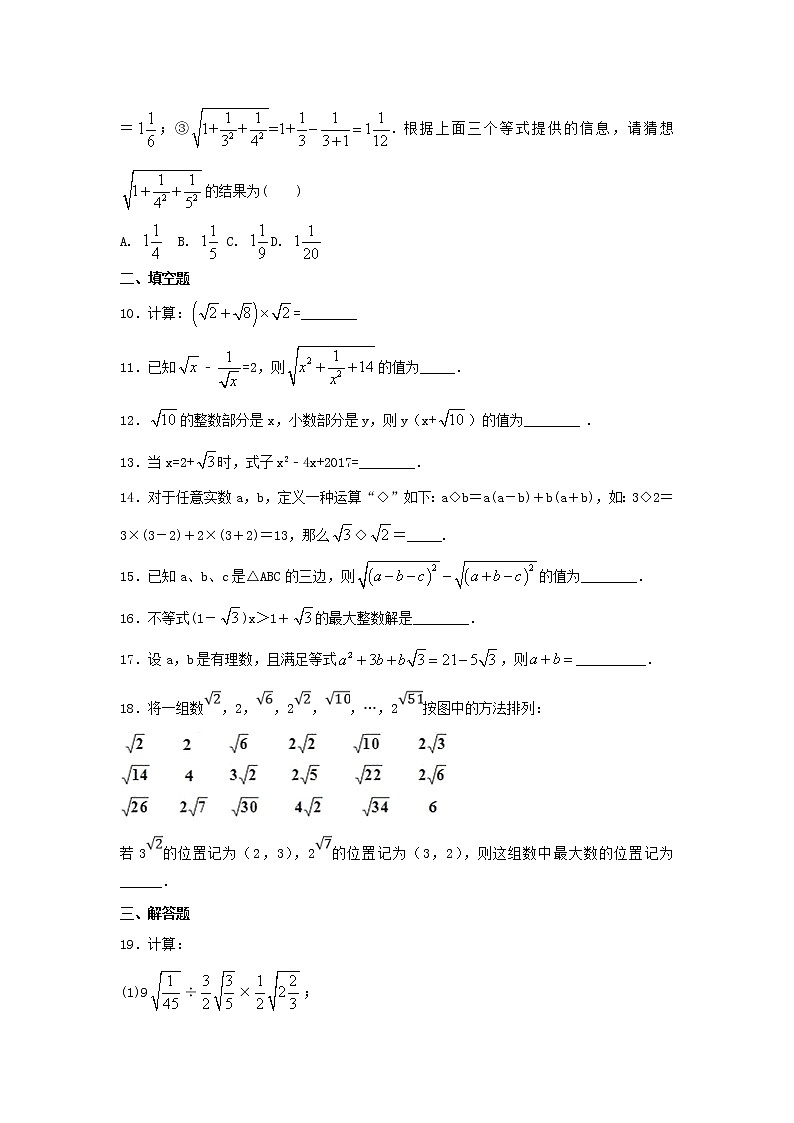 = 1 1/6；③√(1+1/3²+1/4²)=1+1/3−1/(3+1)=1 1/12．根据上面三个等式提供的信息，请猜想
√(1+1/4²+1/5²)的结果为(　　)
A. 1 1/4　B. 1 1/5 C. 1 1/9 D. 1 1/20
二、填空题
10．计算：(√2+√8)×√2=________
11．已知√x﹣1/√x=2，则√(x²+1/x²+14)的值为_____．
12．√10的整数部分是x，小数部分是y，则y（x+√10）的值为________ ．
13．当x=2+√3时，式子x²﹣4x+2017=________．
14．对于任意实数a，b，定义一种运算“◇”如下：a◇b＝a(a－b)＋b(a＋b)，如：3◇2＝
3×(3－2)＋2×(3＋2)＝13，那么√3◇√2＝_____．
15．已知a、b、c是△ABC的三边，则√((a−b−c)²)−√((a+b−c)²)的值为________．
16．不等式(1－√3)x＞1＋√3的最大整数解是________．
17．设a，b是有理数，且满足等式a²+3b+b√3=21−5√3，则a+b=__________．
18．将一组数√2，2，√6，2√2，√10，…，2√51按图中的方法排列：
√2 2 √6 2√2 √10 2√3
√14 4 3√2 2√5 √22 2√6
√26 2√7 √30 4√2 √34 6
若3√2的位置记为（2，3），2√7的位置记为（3，2），则这组数中最大数的位置记为
______．
三、解答题
19．计算：
(1)9√(1/45)÷3/2√(3/5)×1/2√(2 2/3)；